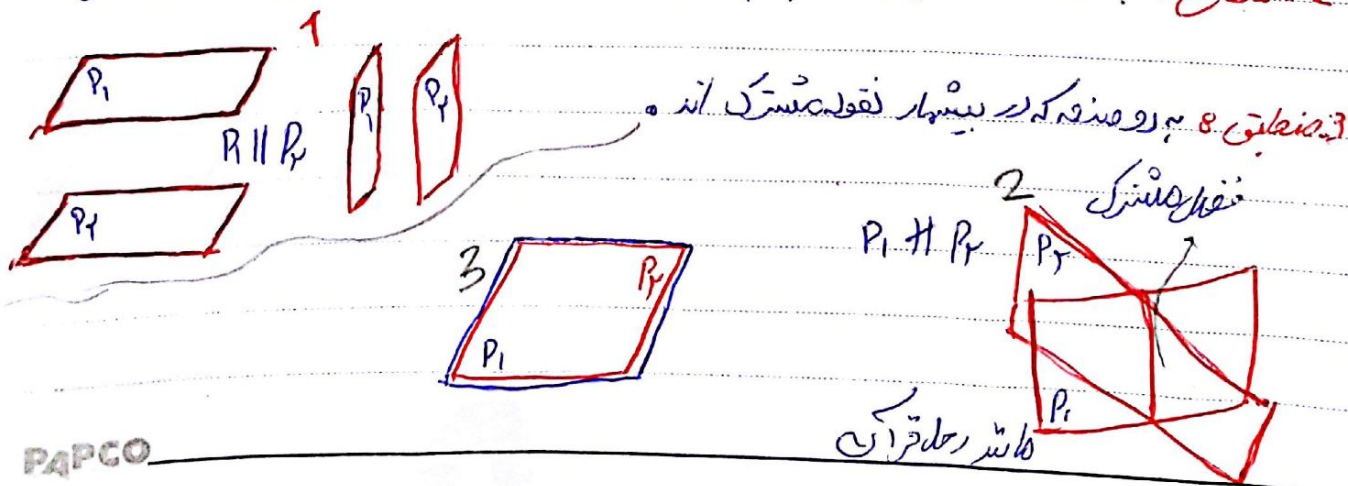 1
P₁
P₁ P₂
P₁ || P₂
P₂
3_منطبق 8 به دو صفحه که در بیشمار نقطه مشترک اند .
2
مشترک
P₁ ∦ P₂
P₂
3
P₂
P₁
P₁
مانند رحل قرآن
PAPCO